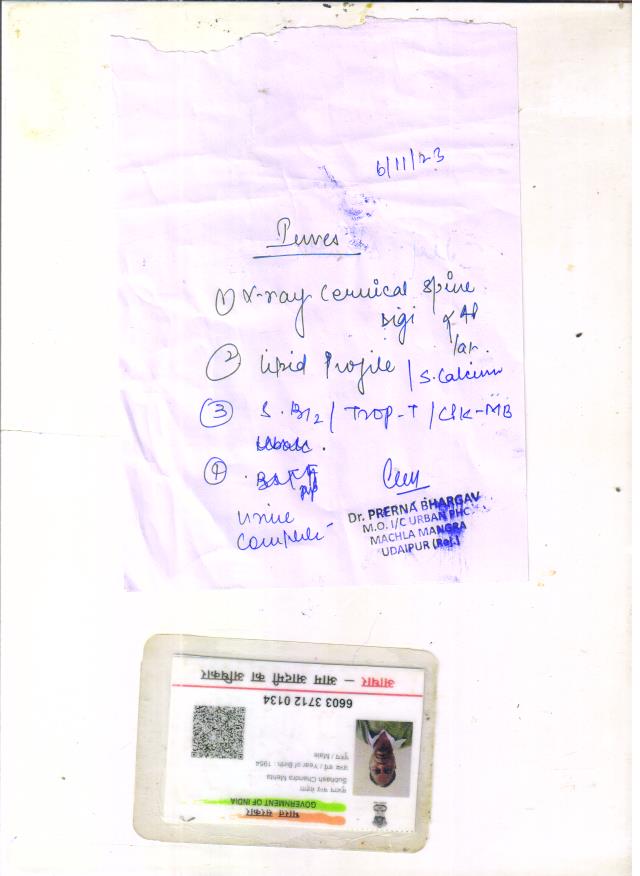 6/11/23
① X-ray Cervical Spine
Digi AP
lat.
② Lipid Profile / S. Calcium
③ S. B12 / Trop-T / CPK-MB
④
Urine
Complete
Dr. PRERNA BHARGAV
M.O. I/C URBAN PHC
MACHLA MANGRA
UDAIPUR (Raj.)
भारत सरकार
GOVERNMENT OF INDIA
सुभाष चन्द्र मेहता
Subhash Chandra Mehta
जन्म वर्ष / Year of Birth : 1954
पुरुष / Male
6603 3712 0134
आधार – आम आदमी का अधिकार